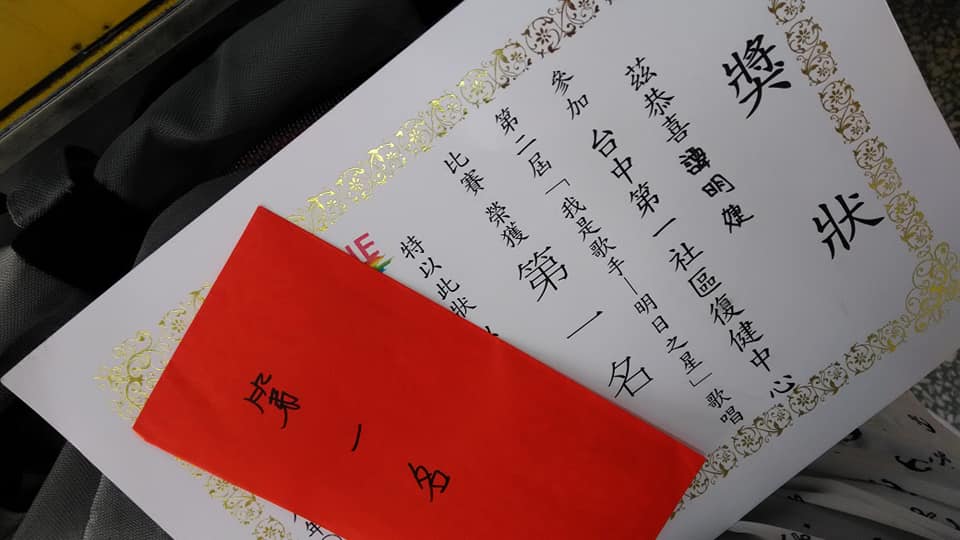 獎狀
茲恭喜譚明婕
參加 台中第一社區復健中心
第二屆「我是歌手—明日之星」歌唱
比賽 榮獲 第一名
特以此狀
年
第一名